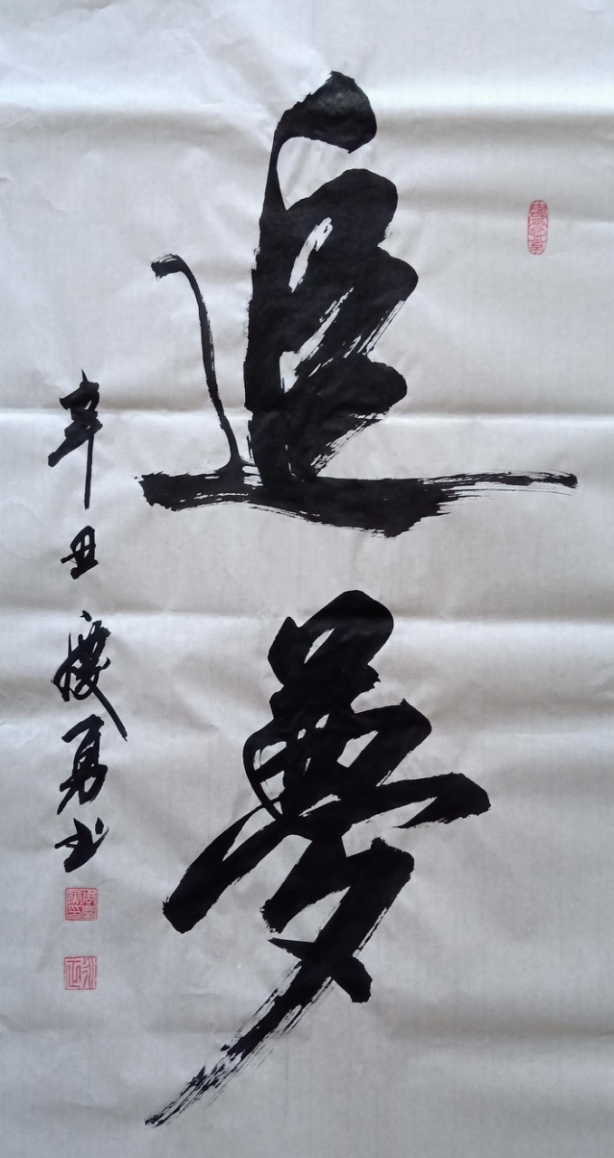 追夢
辛丑 勇书